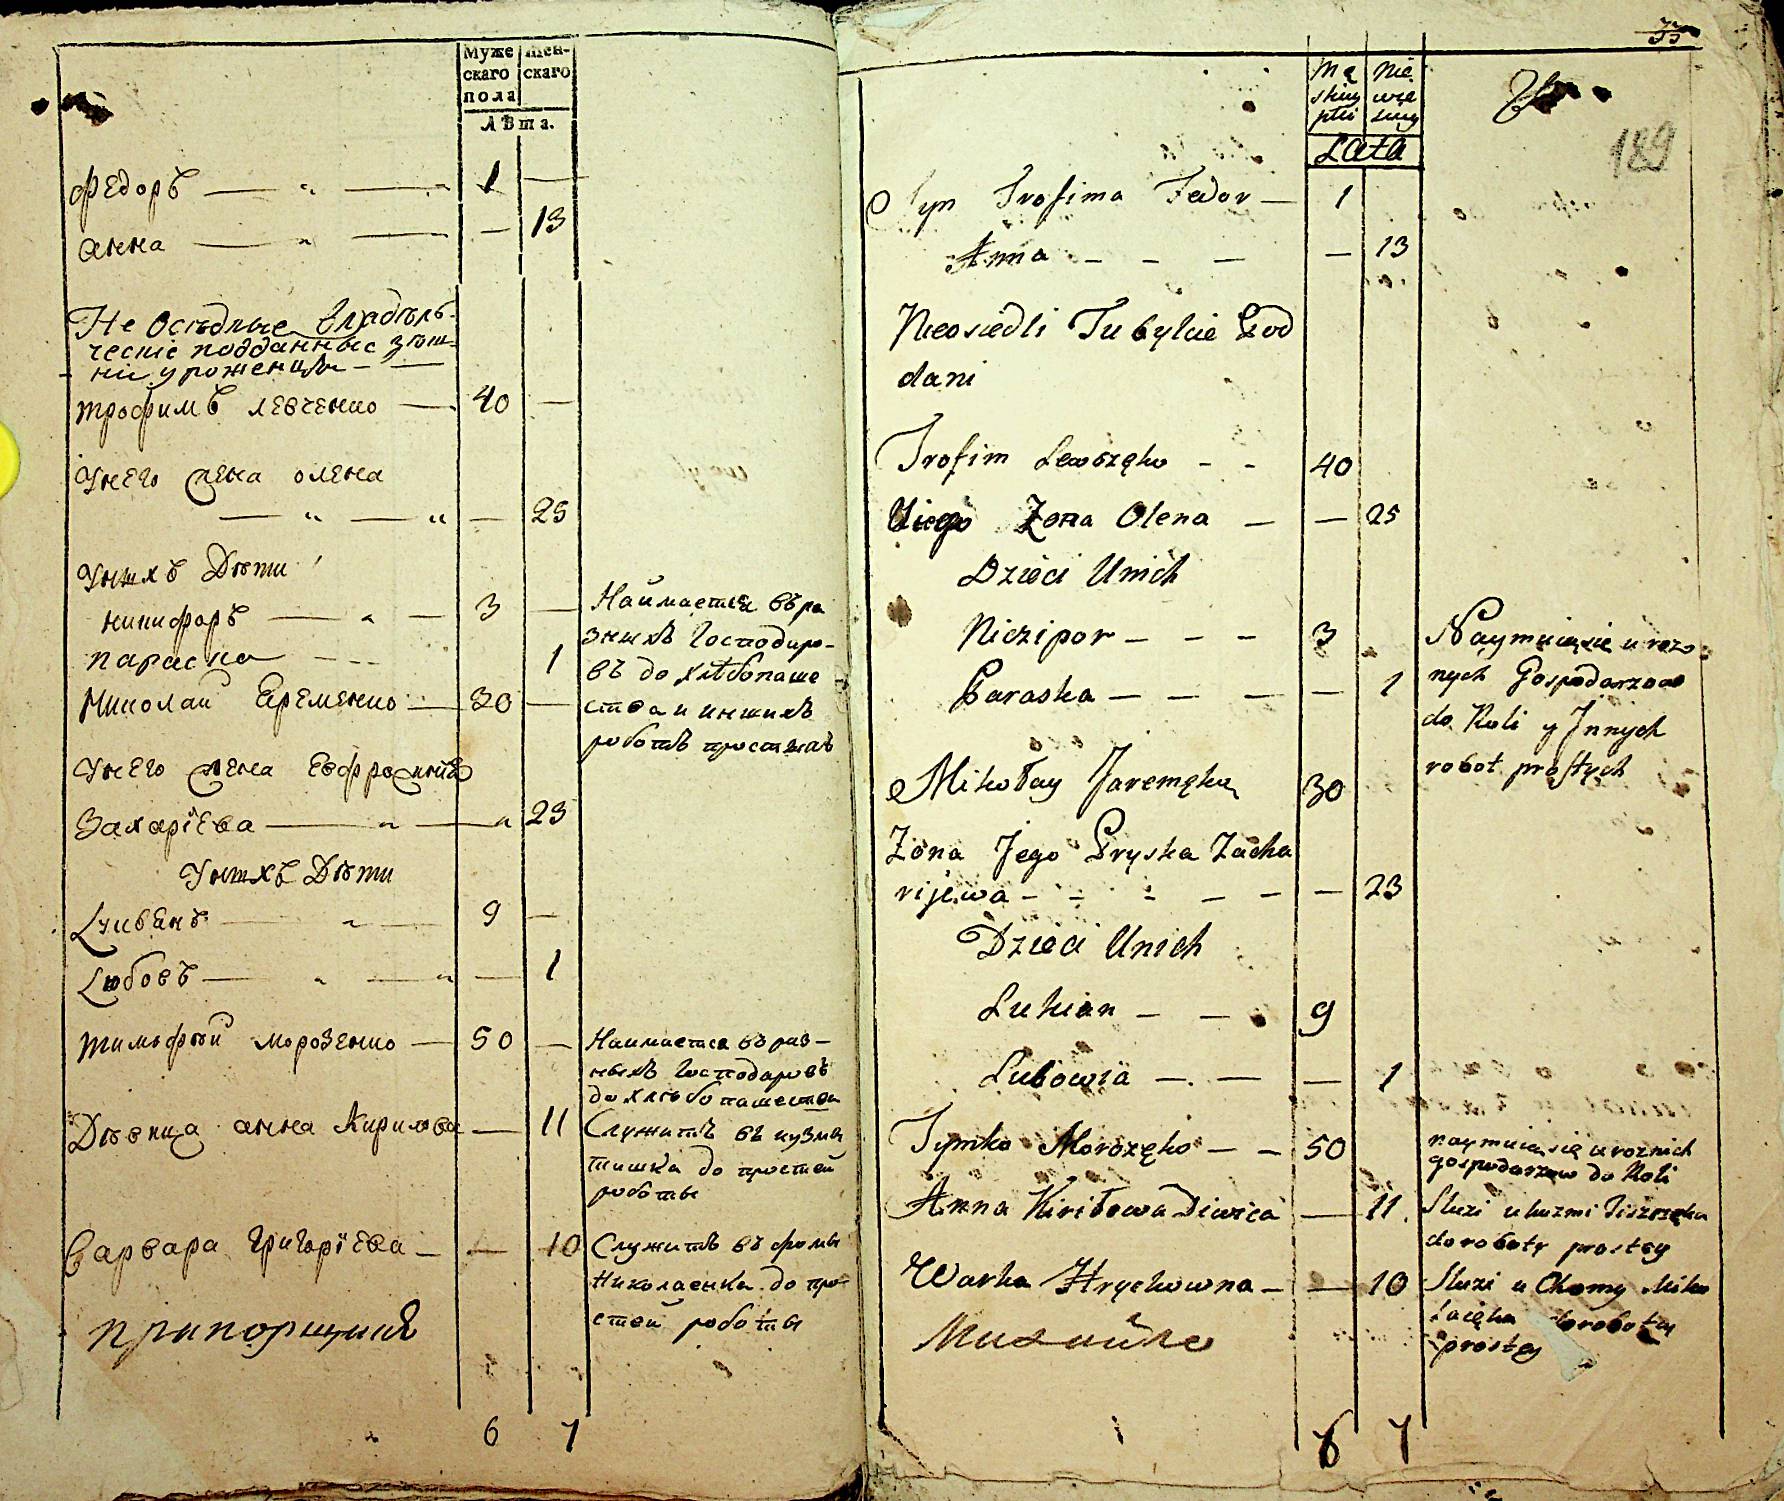 Муже скаго пола
Жен- скаго
Лѣта.
Федоръ — „ — 1 —
анна — „ — — 13
Не Осѣдлые владѣль-
ческіе подданные здѣш-
ніи уроженцы —
трофимъ левченко — 40 —
Унего жена олена
— „ — „ — 25
Унихъ Дѣти
никифоръ — „ — 3 —
параска — — 1
Николай Еременко — 30 —
Унего жена Евфросинія
Захаріева — „ — „ 23
Унихъ Дѣти
Лукіянъ — „ — 9 —
Любовъ — „ — „ — 1
тимофѣй морозенко — 50 —
Дѣвица анна Кирилова — 11
Варвара Григоріева — — 10
прапорщикъ
6 7
Наймается въ ра
зныхъ Господаро-
въ до хлѣбопаше
ства и иншихъ
роботъ простыхъ
Наимается въ раз-
ныхъ Господаровъ
до хлѣбопашества
Служитъ въ кузмы
тишка до простой
роботы
Служитъ въ фомы
Николаенка до про
стой роботы
33
189
Mę skiey płci
Nie wie sciey
Lata
Syn Trofima Fedor — 1
Anna — — — — 13
Nieosiedli Tubylcie Pod
dani
Trofim Lewczęko - - 40
Uiego Zona Olena — — 25
Dzieci Unich
Niczipor — — — 3
Paraska — — — — 1
Mikołay Jaremęko 30
Zona Jego Pryska Zacha
rijewa — — — — — — 23
Dzieci Unich
Lukian — — 9
Lubowia — — — 1
Tymko Morozęko — — 50
Anna Kiriłowa Diwica — 11
Warka Hryckowna — — 10
6 7
Naymuie się u rozo
nych Gospodarzow
do Roli y Jnnych
robot prostych
naymuie się u roznich
gospodarzow do Roli
Słuzi u kuzmi Tiszczęka
do roboty prostey
Słuzi u Chomy Miko
łaęka do roboty
prostey